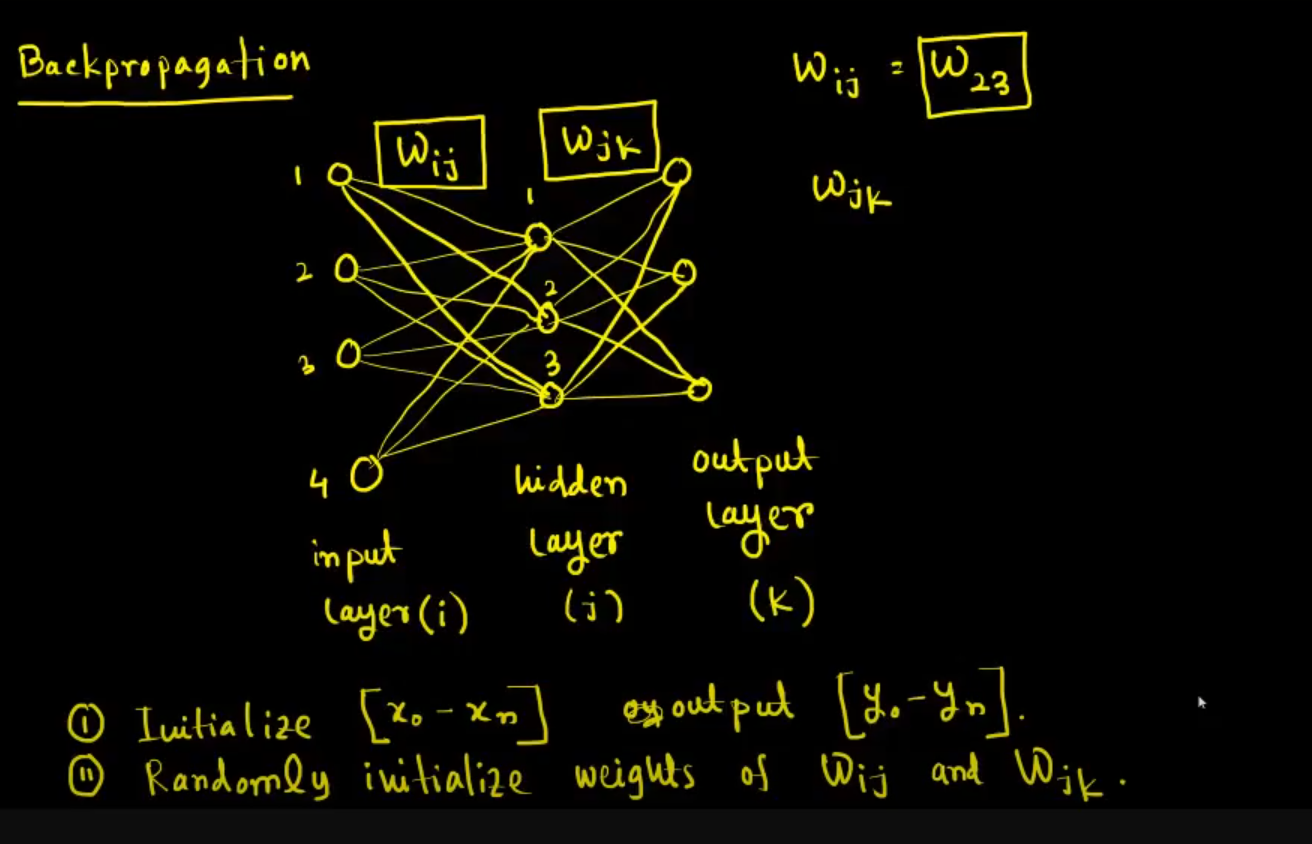 Backpropagation
Wij = W23
Wij
Wjk
Wjk
1
1
2
2
3
3
4
input
layer (i)
hidden
layer
(j)
output
layer
(k)
(I) Initialize [x0 - xn] output [y0 - yn].
(II) Randomly initialize weights of Wij and Wjk.